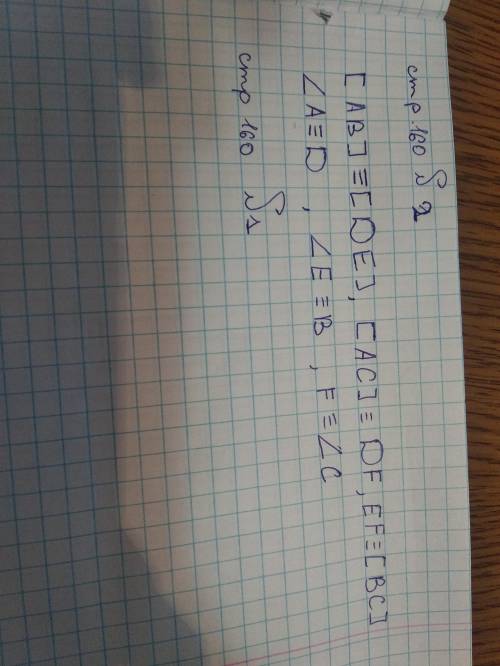 стр 160 № 2
[AB] ≡ [DE], [AC] ≡ DF, EF ≡ [BC]
∠A ≡ D, ∠E ≡ B, F ≡ ∠C
стр 160 № 1